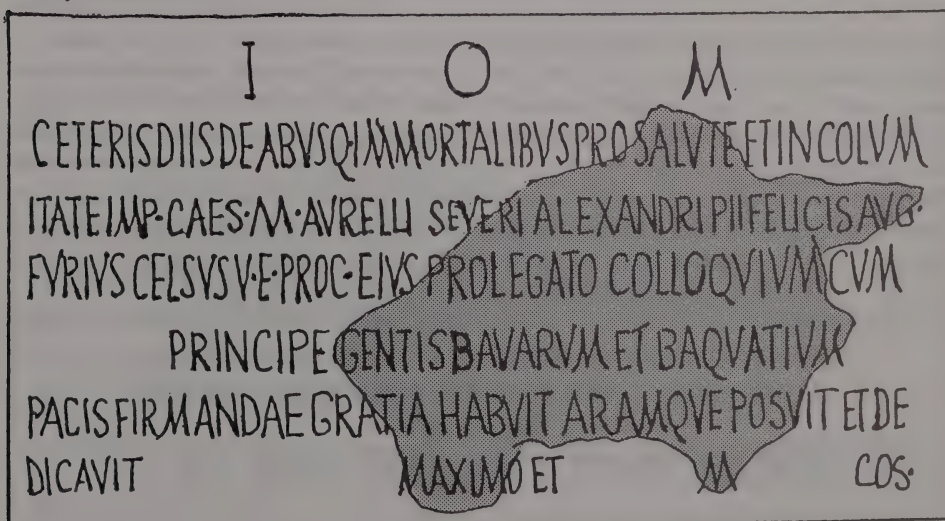 I O M
CETERISDIISDEABVSQ·IMMORTALIBVSPROSALVTEETINCOLVM
ITATEIMP·CAES·M·AVRELLI SEVERI ALEXANDRI PII FELICIS AVG·
FVRIVS CELSVS V·E·PROC·EIVS PROLEGATO COLLOQVIVM CVM
PRINCIPE GENTIS BAVARVM ET BAQVATIVM
PACIS FIRMANDAE GRATIA HABVIT ARAMQVE POSVIT ET DE
DICAVIT MAXIMO ET M COS·